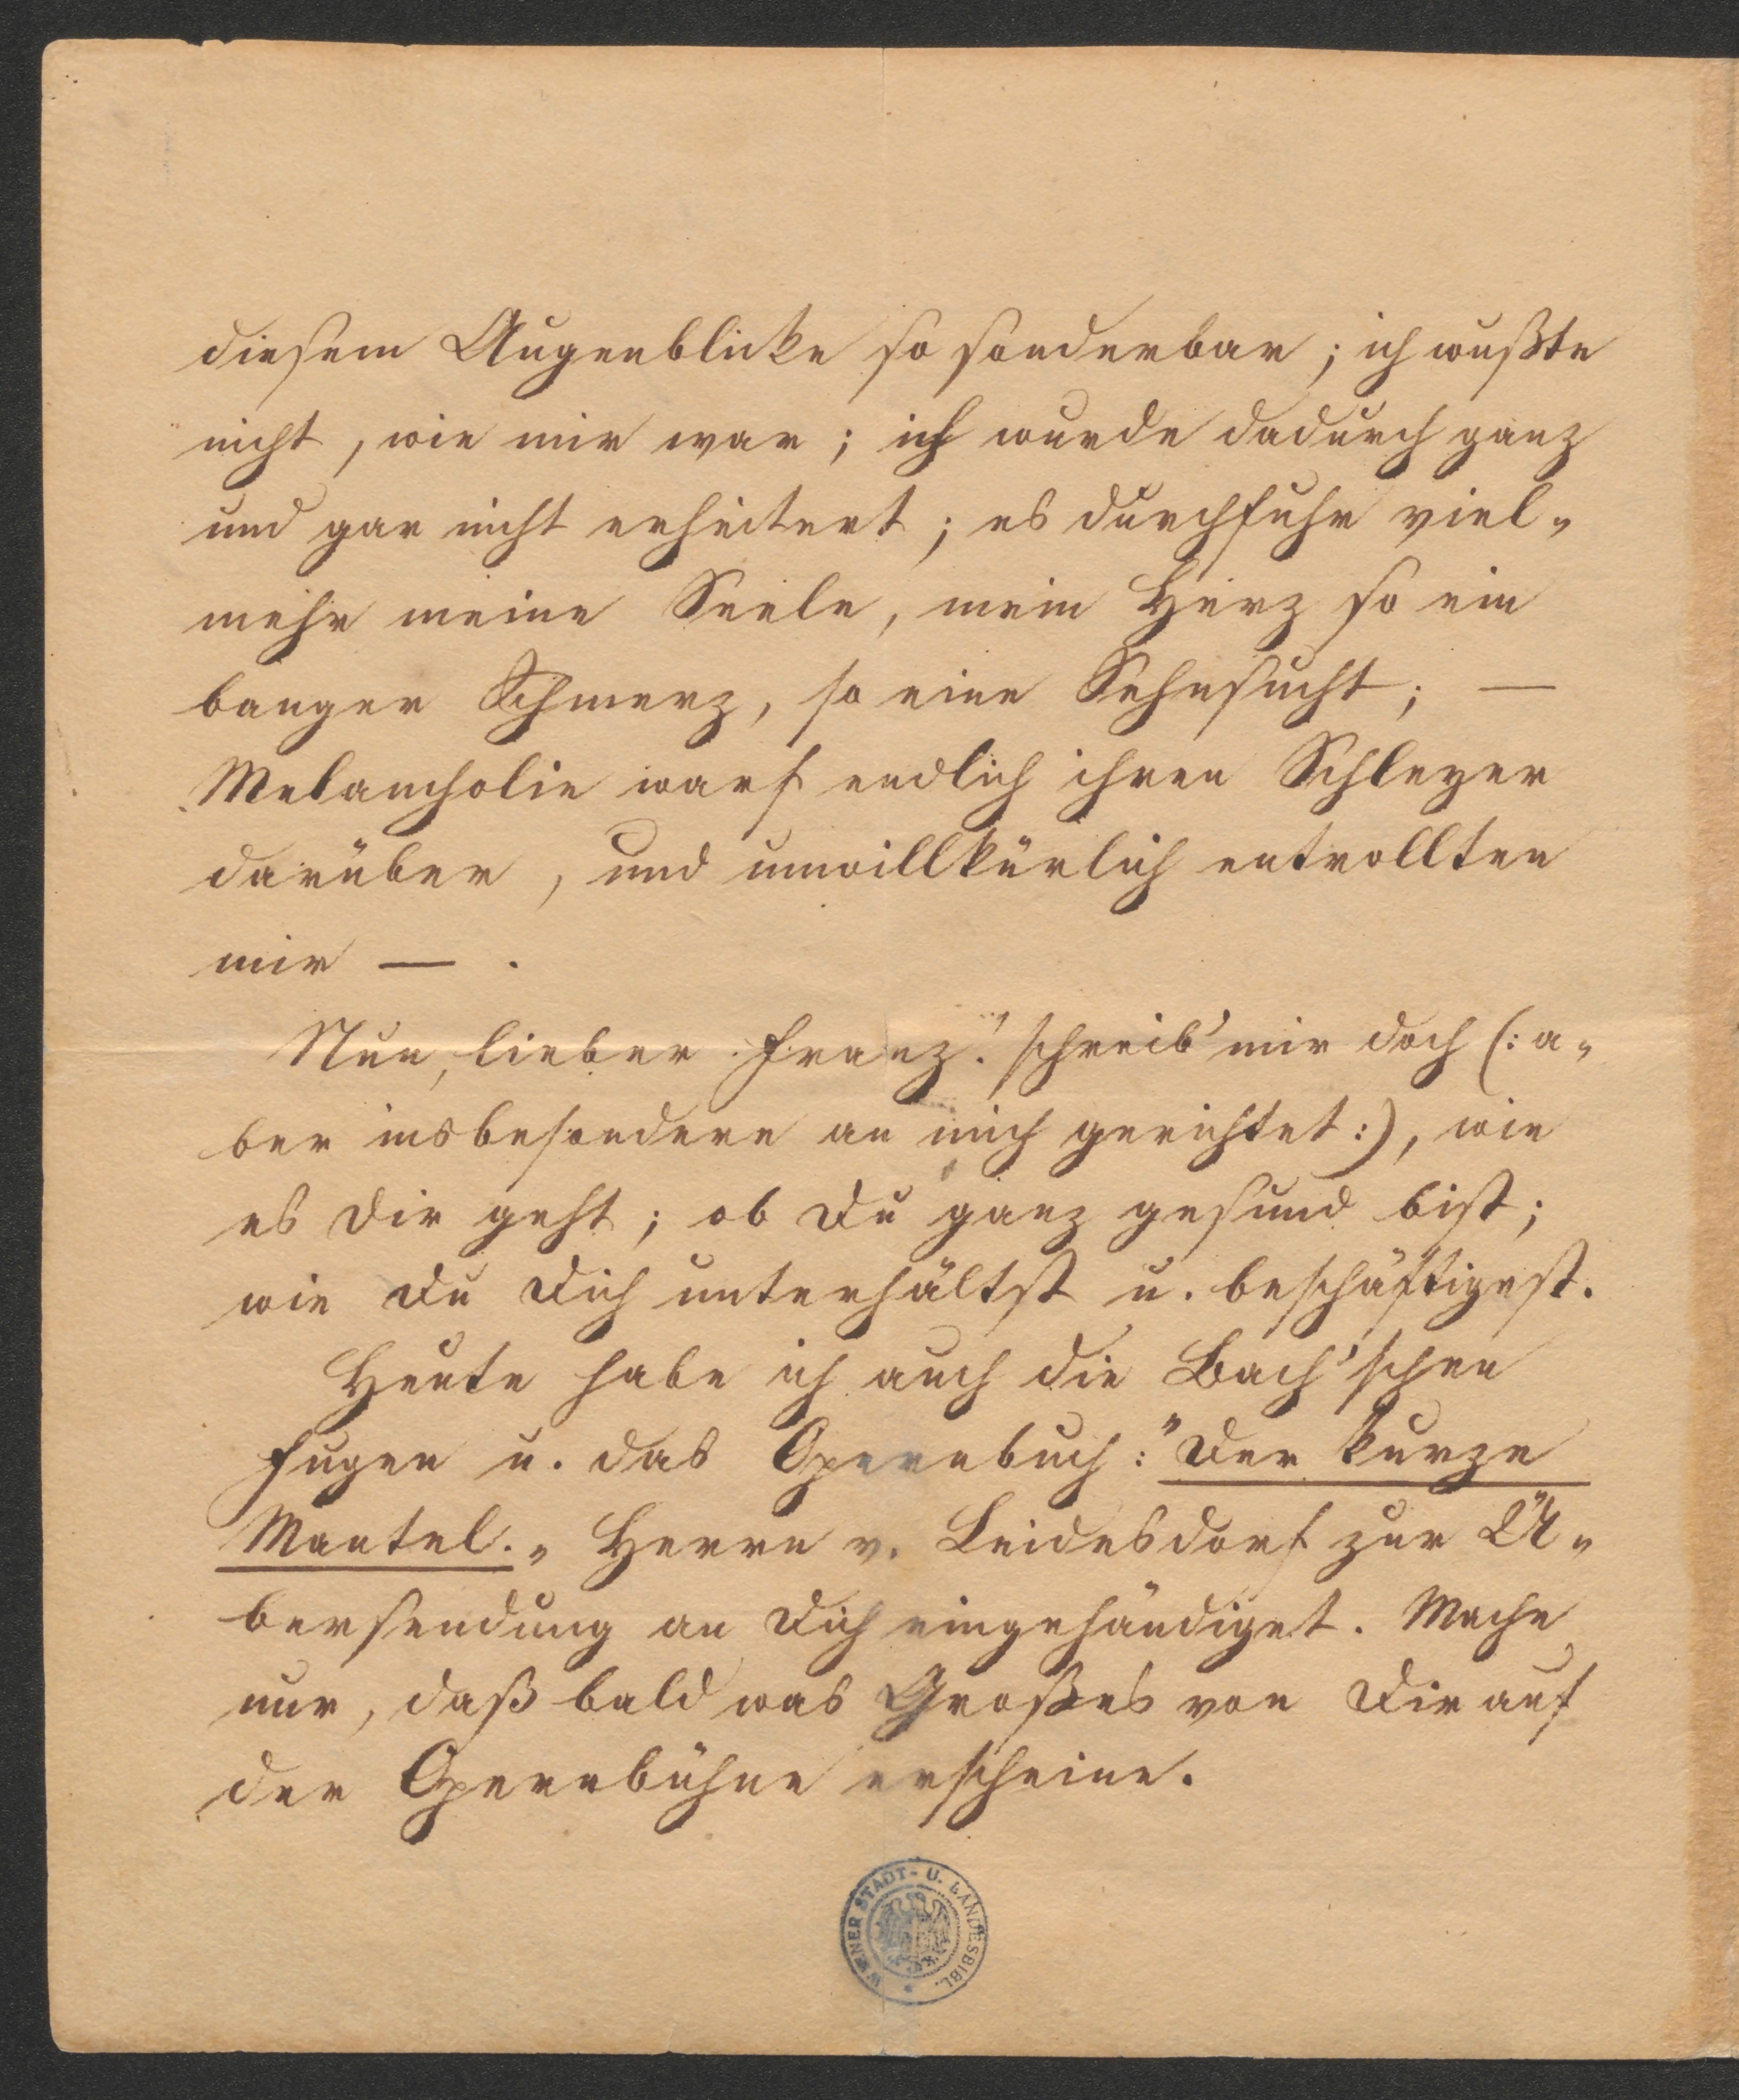 diesem Augenblicke so sonderbar; ich wußte
nicht, wie mir war; ich wurde dadurch ganz
und gar nicht erheitert; es durchfuhr viel„
mehr meine Seele, mein Herz so ein
banger Schmerz, so eine Sehnsucht; —
Melancholie warf endlich ihren Schleyer
darüber, und unwillkürlich entrollten
mir — .
Nun, lieber Franz! schreib' mir doch (: a„
ber insbesondere an mich gerichtet :), wie
es Dir geht; ob Du ganz gesund bist;
wie Du Dich unterhältst u. beschäftigest.
Heute habe ich auch die Bach'schen
Fugen u. das Opernbuch: "Der kurze
Mantel.„ Herrn v. Leidesdorf zur Ü„
bersendung an Dich eingehändiget. Mache
nur, daß bald was Großes von Dir auf
der Opernbühne erscheine.
WIENER STADT- U. LANDESBIBL.